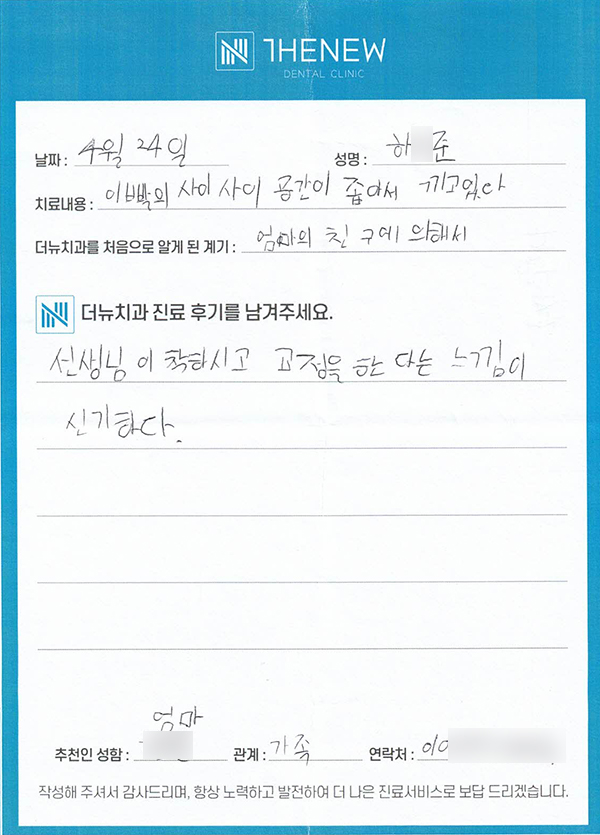 THENEW
DENTAL CLINIC
날짜 : 4월 24일 성명 : 하 준
치료내용 : 이빨의 사이 사이 공간이 좁아서 끼고있다
더뉴치과를 처음으로 알게 된 계기 : 엄마의 친구에 의해서
더뉴치과 진료 후기를 남겨주세요.
선생님이 착하시고 교정을 한 다는 느낌이
신기하다.
엄마
추천인 성함 : 관계 : 가족 연락처 : 010
작성해 주셔서 감사드리며, 항상 노력하고 발전하여 더 나은 진료서비스로 보답 드리겠습니다.